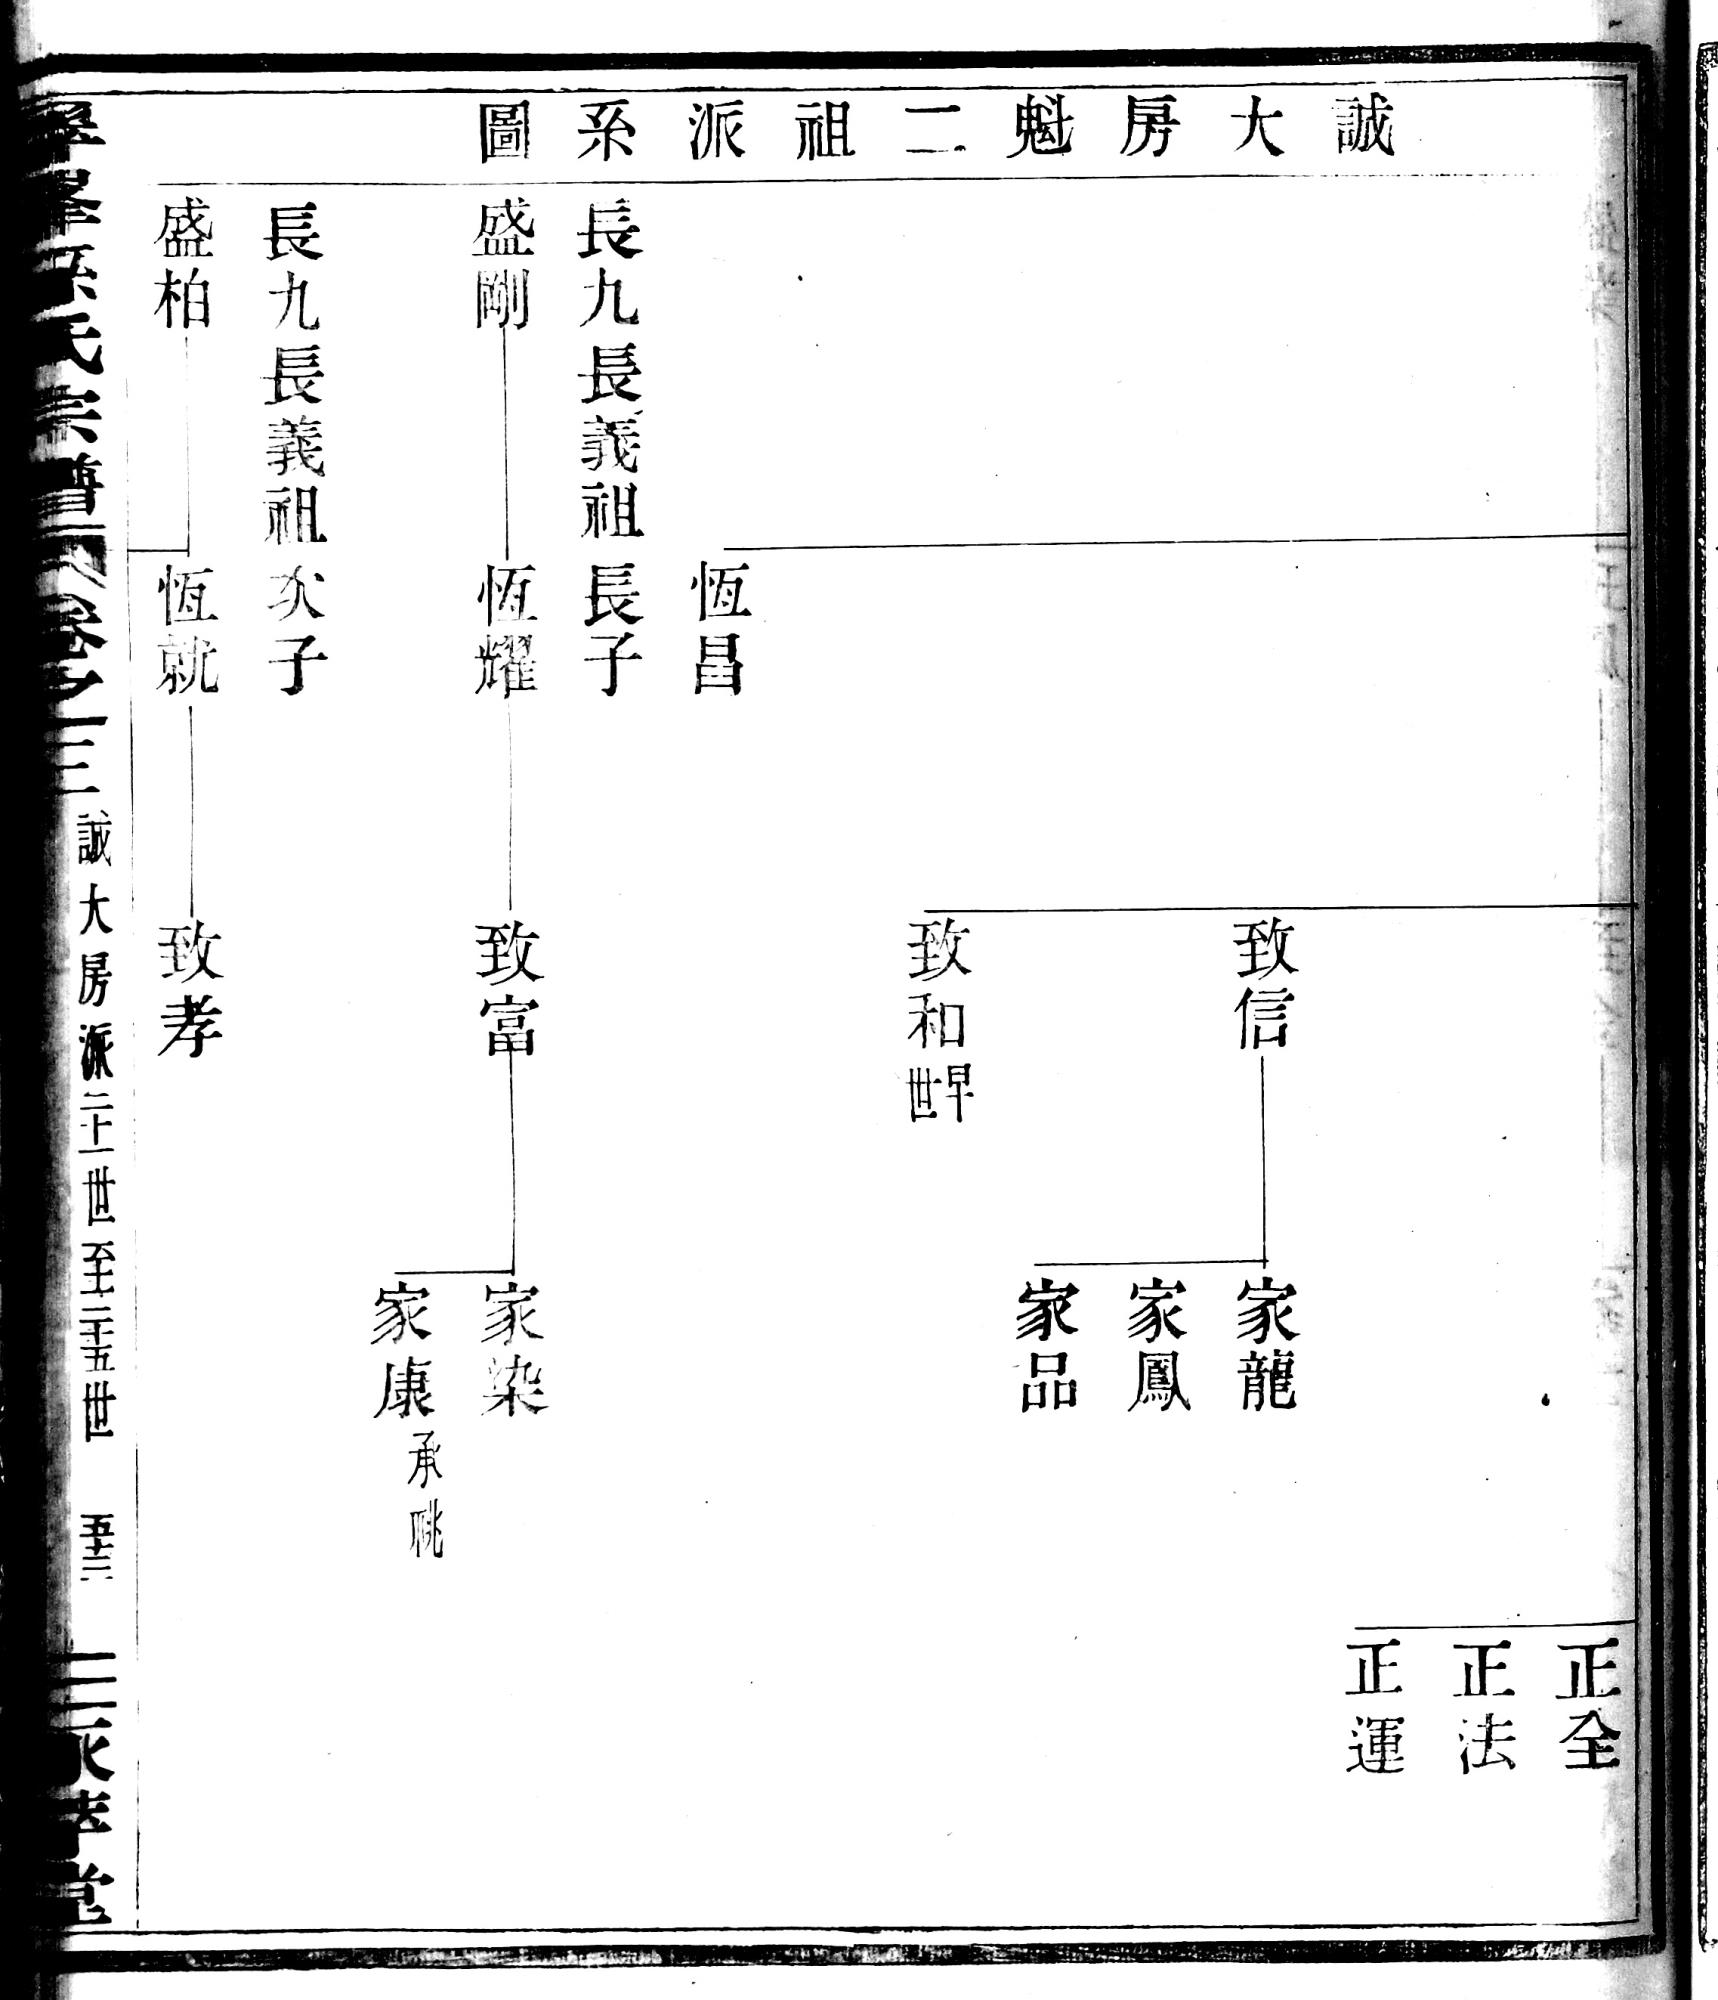 誠大房魁二祖派系圖
正全
正法
正運
致信
家龍
家鳳
家品
致和
早世
恆昌
長九長義祖長子
盛剛
恆耀
致富
家染
家康
承祧
長九長義祖次子
盛柏
恆就
致孝
氏宗譜
卷之三
誠大房派二十一世至二十五世
五十三
堂